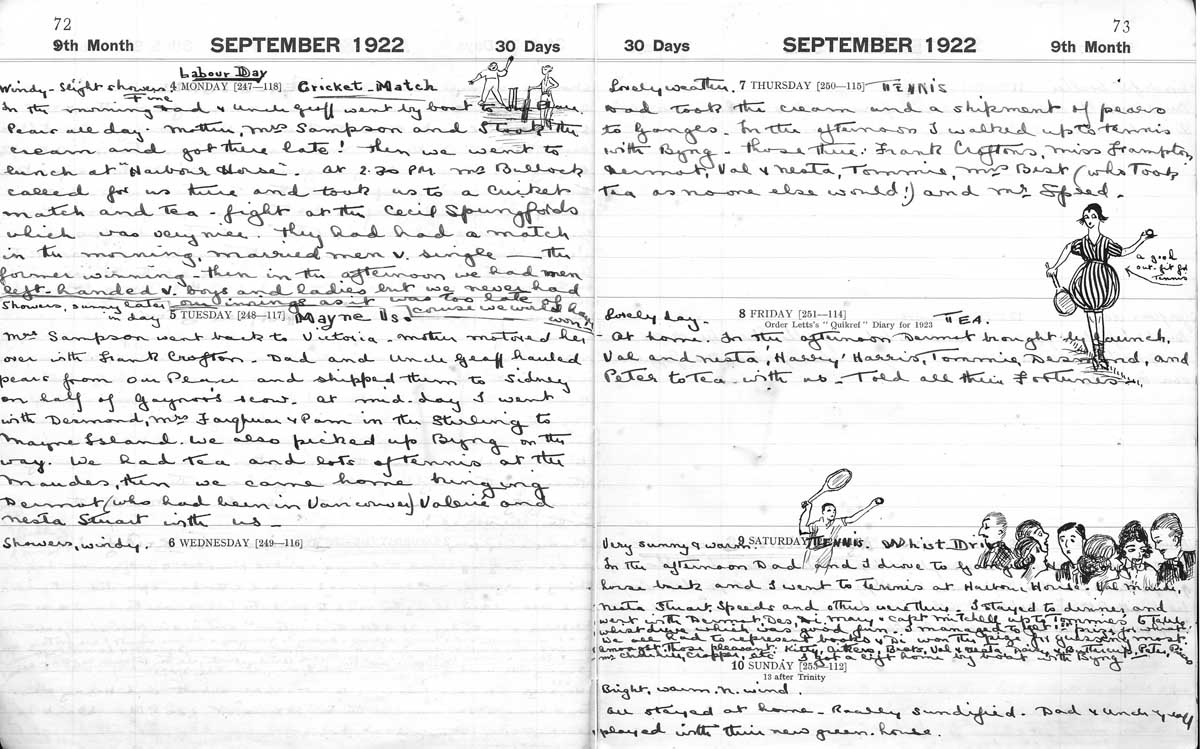 72
9th Month SEPTEMBER 1922 30 Days
Labour Day
Windy - slight showers. 4 MONDAY [247—118] Cricket Match
Fine
In the morning Dad & Uncle Geoff went by boat to
Pears all day. Mother, Mrs Sampson and I took the
cream and got there late! Then we went to
lunch at "Harbour House". At 2.30 P.M. Mr Bullock
called for us there and took us to a cricket
match and tea-fight at the Cecil Springfords
which was very nice. They had had a match
in the morning, married men v. single — the
former winning - then in the afternoon we had men
left-handed v. boys and ladies but we never had
our innings as it was too late of
course we would have
won
Showers, sunny later
in day 5 TUESDAY [248—117] Mayne Is.
Mrs Sampson went back to Victoria. Mother motored her
over with Frank Crofton. Dad and Uncle Geoff hauled
pears from our Place and shipped them to Sidney
on half of Gaynor's scow. At mid-day I went
with Desmond, Mrs Farquhar & Pam in the Stirling to
Mayne Island. We also picked up Byng on the
way. We had tea and lots of tennis at the
Maudes, then we came home bringing
Dermot (who had been in Vancouver) Valerie and
Nesta Stuart with us -
Showers, windy. 6 WEDNESDAY [249—116]
73
30 Days SEPTEMBER 1922 9th Month
Lovely weather. 7 THURSDAY [250—115] TENNIS
Dad took the cream and a shipment of pears
to Ganges. In the afternoon I walked up to tennis
with Byng - those there: Frank Croftons, Miss Frampton,
Dermot, Val & Nesta, Tommie, Mrs Best (who Took
Tea as no one else would!) and Mr Speed.
a good
out-fit for
Tennis
Lovely day. 8 FRIDAY [251—114] TEA.
Order Letts's "Quikref" Diary for 1923
At home. In the afternoon Dermot brought by launch,
Val and Nesta, 'Harry' Harris, Tommie, Desmond, and
Peter to Tea with us - Told all their Fortunes
Very sunny & warm. 9 SATURDAY TENNIS. Whist Drive
In the afternoon Dad and I drove to Ganges
horse back and I went to Tennis at Harbour House. Val Maude,
Nesta Stuart, Speeds and others were there. I stayed to dinner and
went with Dermot, Des, Di, Mary & Capt Mitchell up to Tommies to take
whist drive which was good fun. I managed to get 1st prize for whist.
We all had to represent books & Di won the prize for guessing most.
Amongst those present: Kitty, Bests, Val & Nesta, & Buttercup, Peter,
Mr Cropper, etc. I got a lift home by boat with Byng
10 SUNDAY [253—112]
13 after Trinity
Bright, warm, N. wind.
All stayed at home - sundified. Dad & Uncle Geoff
played with their new green-house.